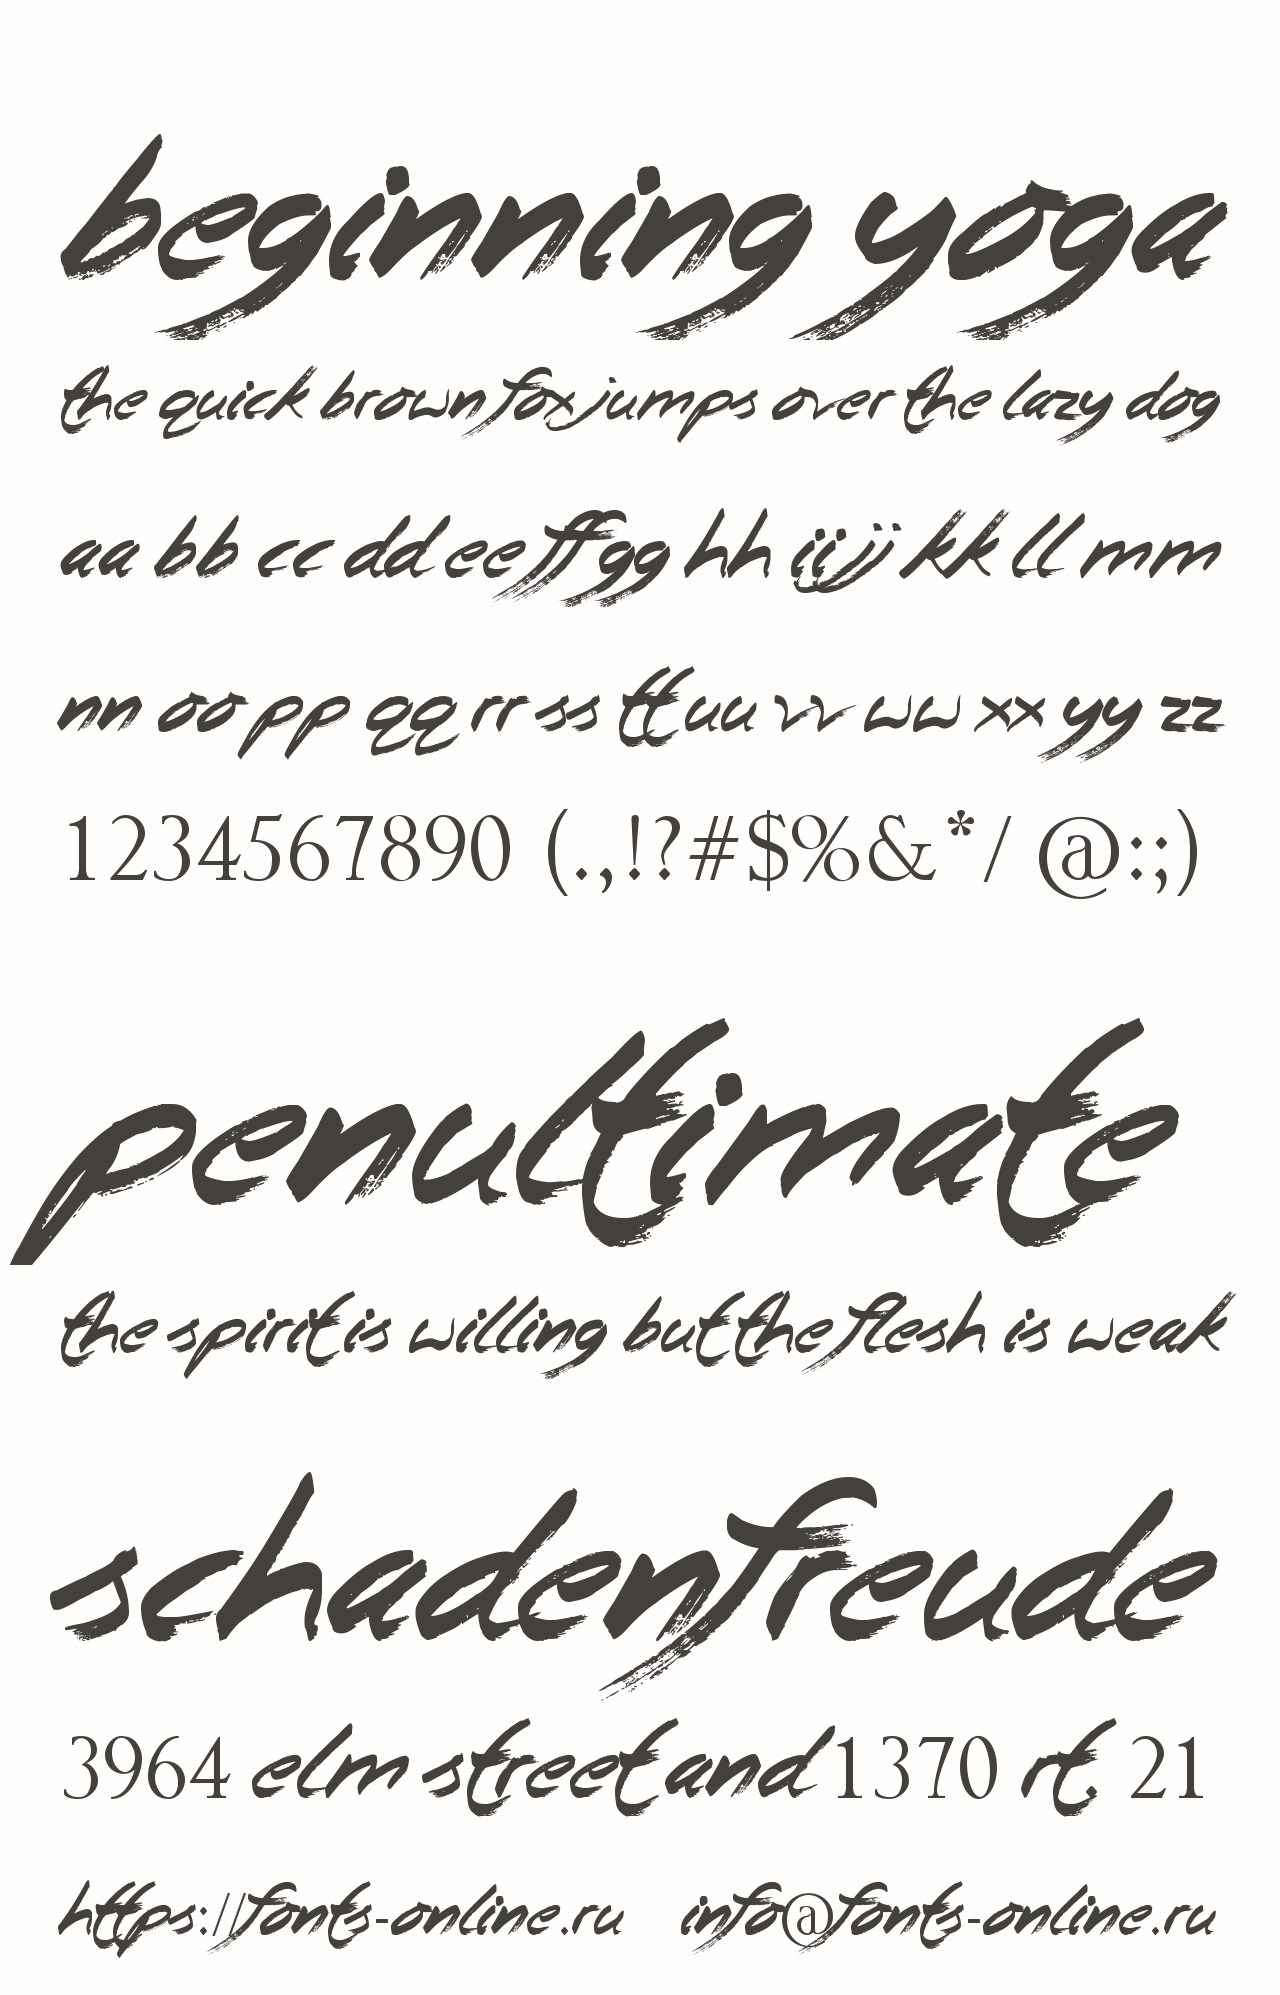 beginning yoga
the quick brown fox jumps over the lazy dog
aa bb cc dd ee ff gg hh ii jj kk ll mm
nn oo pp qq rr ss tt uu vv ww xx yy zz
1234567890 (.,!?#$%&*/ @:;)
penultimate
the spirit is willing but the flesh is weak
schadenfreude
3964 elm street and 1370 rt. 21
https://fonts-online.ru info@fonts-online.ru